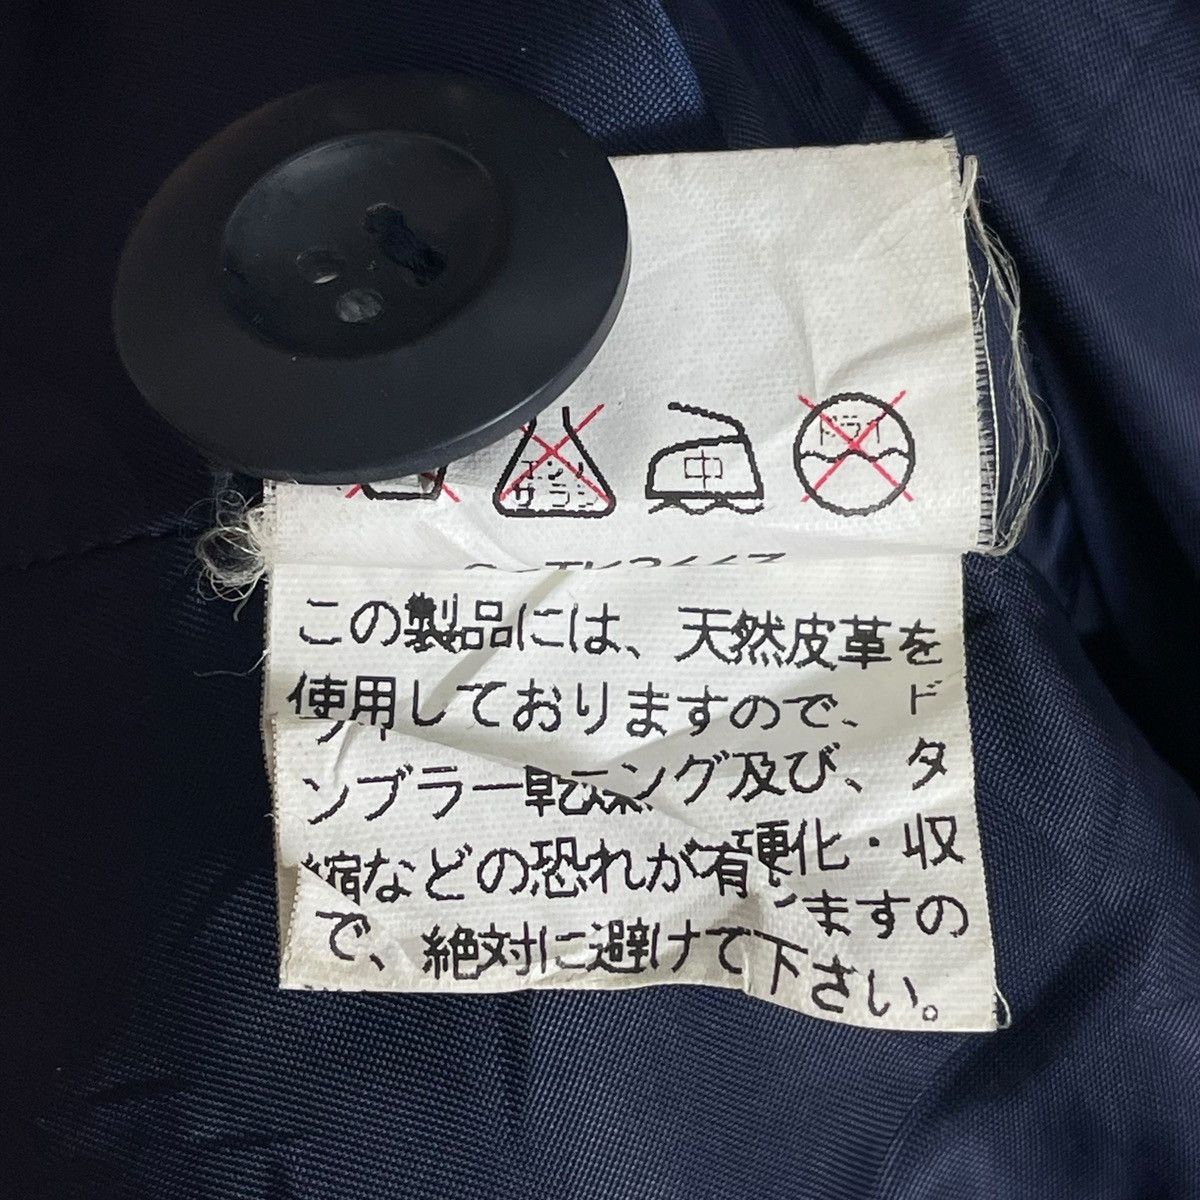 エンソ
サラシ
中
ドライ
この製品には、天然皮革を
使用しておりますので、ド
ング及び、タ
ンブラー乾燥
硬化・収
縮などの恐れが有
ますの
で、絶対に避けて下さい。